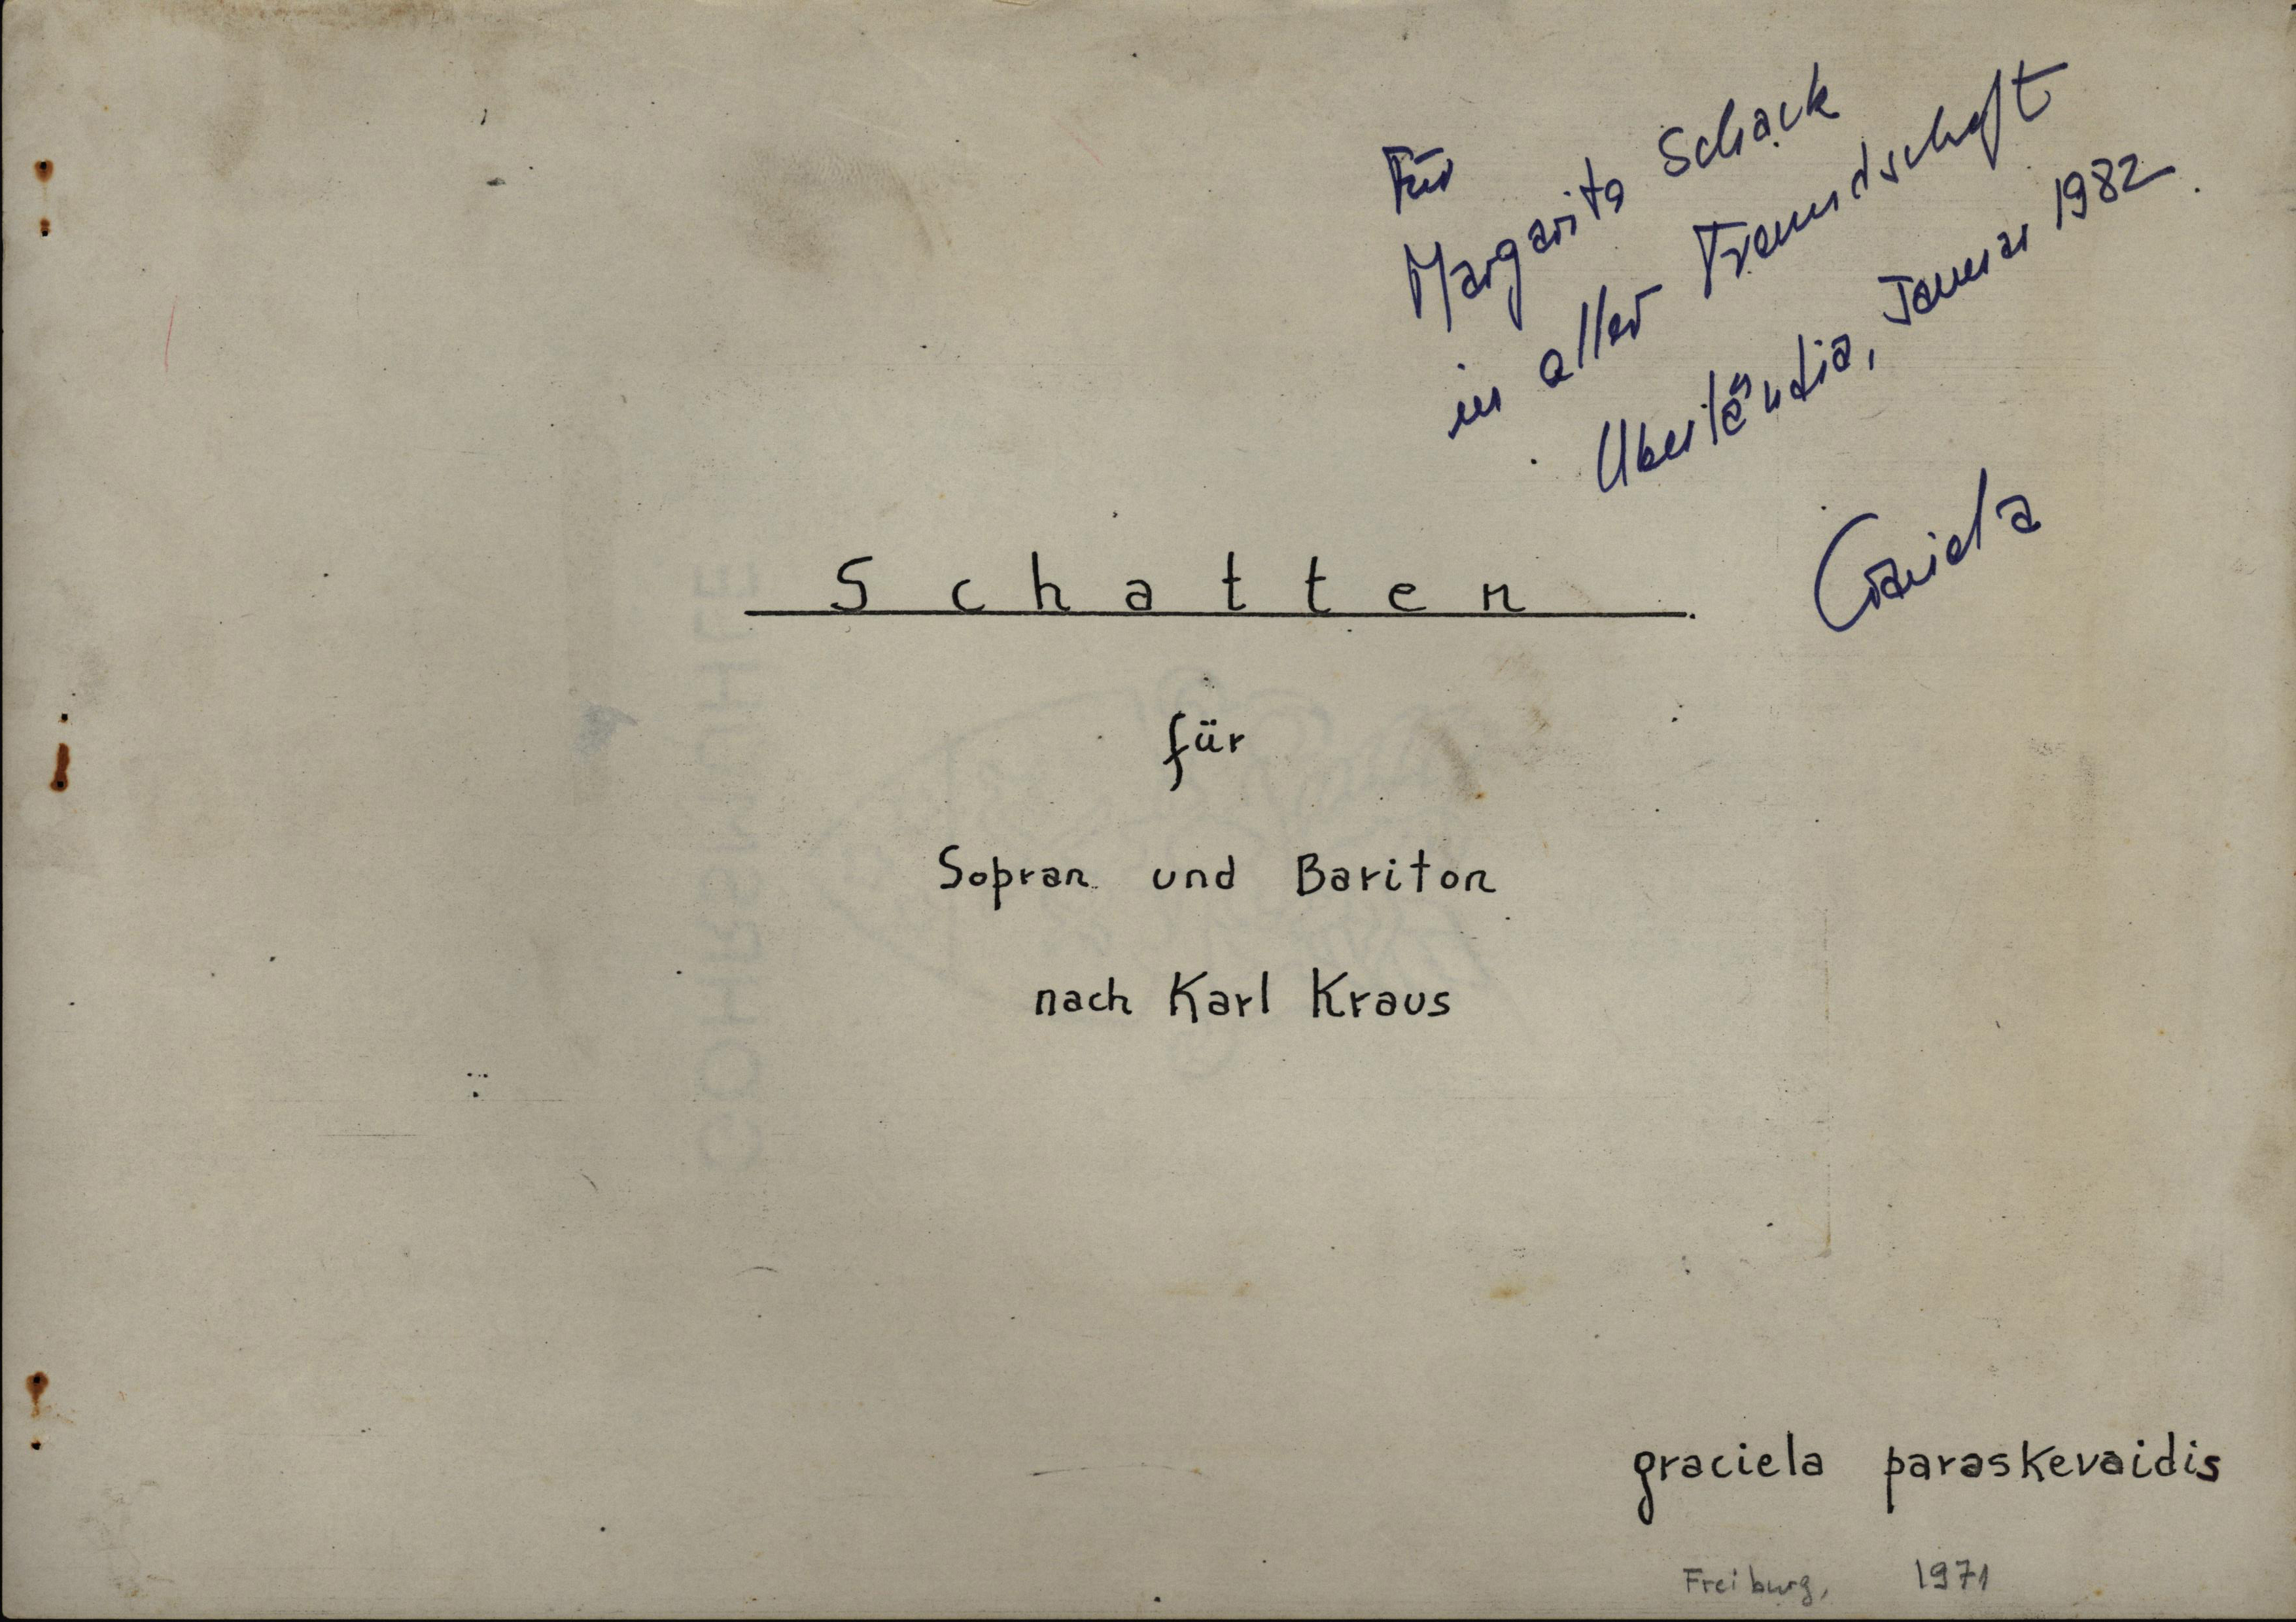 Für
Margarita Schack
in aller Freundschaft
Uberlândia, Januar 1982
Graciela
Schatten
für
Sopran und Bariton
nach Karl Kraus
graciela paraskevaidis
Freiburg, 1971